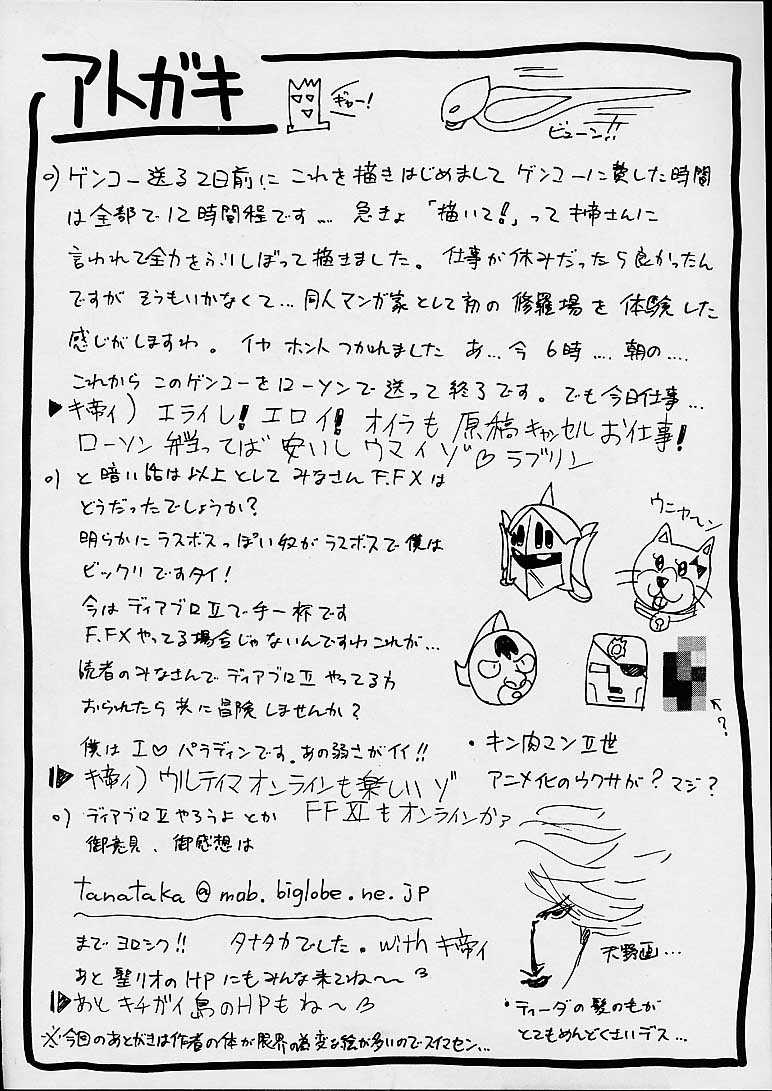 アトガキ
ギャー!
ビューン!!
○) ゲンコー送る2日前に これを描きはじめまして ゲンコーに費した時間
は全部で12時間程です… 急きょ 「描いて!」って キ帝さんに
言われて全力をふりしぼって描きました。 仕事が休みだったら良かったん
ですが そうもいかなくて… 同人マンガ家として初の 修羅場を 体験した
感じがしますわ。 イヤ ホント つかれました あ… 今 6時 … 朝の …
これから このゲンコーをローソンで送って終了です。 でも今日仕事…
▶キ帝イ) エライし! エロイ! オイラも 原稿キャンセル お仕事!
ローソン弁当ってば 安いし ウマイゾ♡ ラブリン
○) と暗い話は以上として みなさん F.FXは
どうだったでしょうか?
明らかにラスボスっぽい奴がラスボスで僕は
ビックリですタイ!
今はディアブロⅡで手一杯です
F.FXやってる場合じゃないんですわこれが…
読者のみなさんで ディアブロⅡ やってる方
おられたら 共に冒険しませんか?
僕は I♡ パラディンです。あの弱さがイイ!!
ウニャ〜ン
↖?
・キン肉マンⅡ世
アニメ化のウワサが? マジ?
▶キ帝イ) ウルティマオンラインも楽しいゾ
FFⅪもオンラインかァ
○) ディアブロⅡやろうよ とか
御意見、御感想は
tanataka@mob.biglobe.ne.jp
まで ヨロシク!! タナタカでした。 with キ帝イ
あと 聖リオのHPにもみんな来てね〜
▶あと キチガイ島のHPもね〜
天野画…
・ティーダの髪のもが
とてもめんどくさいデス…
※今回のあとがきは作者の体が限界の為変な絵が多いのでスイマセン…